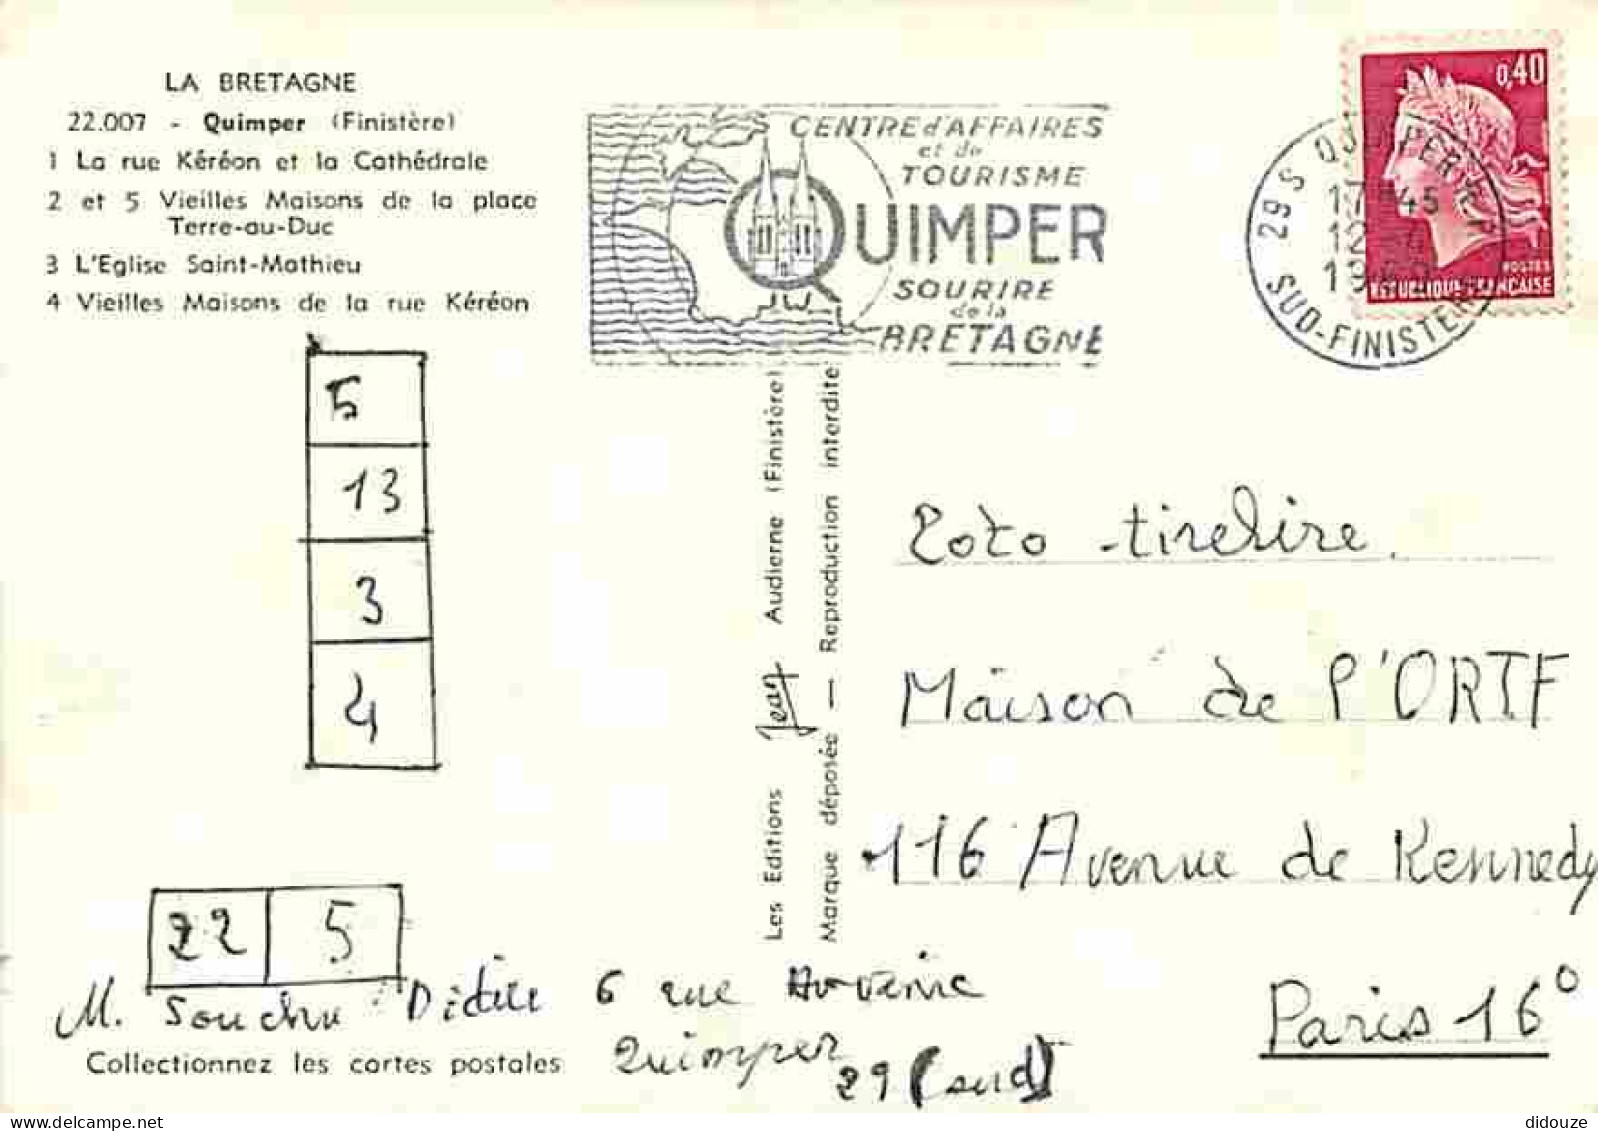 LA BRETAGNE
22.007 - Quimper (Finistère)
1 La rue Kéréon et la Cathédrale
2 et 5 Vieilles Maisons de la place
Terre-au-Duc
3 L'Eglise Saint-Mathieu
4 Vieilles Maisons de la rue Kéréon
CENTRE d'AFFAIRES
et de
TOURISME
QUIMPER
SOURIRE
de la
BRETAGNE
0,40
POSTES
REPUBLIQUE FRANÇAISE
29 S QUIMPER
17 H 45
12
SUD-FINISTERE
5
13
3
4
Les Editions Jean Audierne (Finistère)
Marque déposée — Reproduction interdite
Toto tirelire
Maison de l'ORTF
116 Avenue de Kennedy
Paris 16°
22 5
M. Souchu 6 rue
Quimper
29 (sud)
Collectionnez les cartes postales
didouze